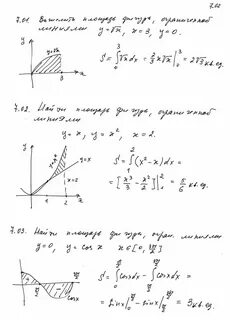 7.01
7.01. Вычислить площадь фигуры, ограниченной
линиями y=√x, x=3, y=0.
y
y=√x
3
x
S = ∫₀³ √x dx = 2/3 x√x |₀³ = 2√3 кв.ед.
7.02. Найти площадь фигуры, ограниченной
линиями
y=x, y=x², x=2.
y
y=x²
y=x
x=2
1 2 x
S = ∫₁² (x²-x)dx =
= [x³/3 - x²/2] |₁² = 5/6 кв.ед.
7.03. Найти площадь фигуры, огран. линиями
y=0, y=cos x x∈[0, 3π/2]
y
π/2
3π/2
x
cos x
S = ∫cos x dx - ∫cos x dx =
= sin x | - sin x | = 3 кв.ед.